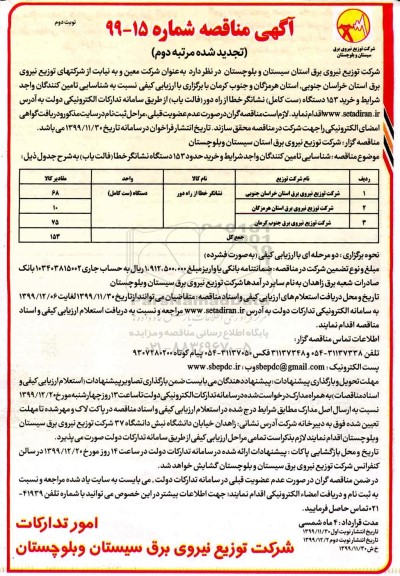 نوبت دوم
آگهی مناقصه شماره ۱۵-۹۹
(تجدید شده مرتبه دوم)
شرکت توزیع نیروی برق
سیستان و بلوچستان
شرکت توزیع نیروی برق استان سیستان و بلوچستان در نظر دارد به عنوان شرکت معین و به نیابت از شرکتهای توزیع نیروی
برق استان خراسان جنوبی، استان هرمزگان و جنوب کرمان با برگزاری با ارزیابی کیفی نسبت به شناسایی تامین کنندگان واجد
شرایط و خرید ۱۵۳ دستگاه (ست کامل) نشانگر خطا از راه دور (فالت یاب) از طریق سامانه تدارکات الکترونیکی دولت به آدرس
www.setadiran.ir اقدام نماید. لازم است مناقصه گران در صورت عدم عضویت قبلی، مراحل ثبت نام در سایت مذکور و دریافت گواهی
امضای الکترونیکی را جهت شرکت در مناقصه محقق سازند. تاریخ انتشار فراخوان در سامانه تاریخ ۱۳۹۹/۱۱/۳۰ می باشد.
مناقصه گزار: شرکت توزیع نیروی برق استان سیستان وبلوچستان
موضوع مناقصه: شناسایی تامین کنندگان واجد شرایط و خرید حدود ۱۵۳ دستگاه نشانگر خطا (فالت یاب) به شرح جدول ذیل:
ردیف نام شرکت توزیع نام کالا واحد مقادیر کالا
۱ شرکت توزیع نیروی برق استان خراسان جنوبی نشانگر خطا از راه دور دستگاه (ست کامل) ۶۸
۲ شرکت توزیع نیروی برق استان هرمزگان ۱۰
۳ شرکت توزیع نیروی برق جنوب کرمان ۷۵
جمع کل ۱۵۳
نحوه برگزاری: دو مرحله ای با ارزیابی کیفی (به صورت فشرده)
مبلغ و نوع تضمین شرکت در مناقصه: ضمانتنامه بانکی یا واریز مبلغ ۱،۹۱۲،۵۰۰،۰۰۰ ریال به حساب جاری ۰۱۰۳۴۰۳۸۱۵۰۰۲ بانک
صادرات شعبه برق زاهدان به نام سایر درآمدها شرکت توزیع نیروی برق سیستان وبلوچستان
تاریخ و محل دریافت استعلام های ارزیابی کیفی و اسناد مناقصه: متقاضیان می توانند از تاریخ ۱۳۹۹/۱۱/۳۰ لغایت ۱۳۹۹/۱۲/۰۶
به سامانه الکترونیکی تدارکات دولت به آدرس www.setadiran.ir مراجعه و نسبت به دریافت استعلام ارزیابی کیفی و اسناد
مناقصه اقدام نمایند.
اطلاعات تماس مناقصه گزار:
تلفن ۳۱۱۳۷۳۳۸-۰۵۴ و ۳۱۱۳۷۳۴۸ فکس ۳۱۱۳۷۰۵۰-۰۵۴ پیام کوتاه ۹۳۰۷۲۸۰۲۰۰
پست الکترونیک: sbepdc@gmail.com وب: www.sbepdc.ir
مهلت تحویل و بارگذاری پیشنهادات: پیشنهاد دهندگان می بایست ضمن بارگذاری تصاویر پیشنهادات (استعلام ارزیابی کیفی و
اسناد مناقصات) به همراه مدارک درخواست شده در سامانه تدارکات الکترونیکی دولت تا ساعت ۱۳ روز چهارشنبه مورخ ۱۳۹۹/۱۲/۲۰
نسبت به ارسال اصل مدارک مطابق شرایط درج شده در استعلام ارزیابی کیفی و اسناد مناقصه در پاکت لاک و مهر شده تا مهلت
تعیین شده فوق به دبیرخانه شرکت آدرس نشانی: زاهدان خیابان دانشگاه نبش دانشگاه ۳۷ شرکت توزیع نیروی برق سیستان
وبلوچستان اقدام نمایند لازم بذکر است تمامی مراحل ارزیابی کیفی از طریق سامانه تدارکات دولت صورت می پذیرد.
تاریخ و محل بازگشایی پاکات: پیشنهادات ارائه شده در سامانه تدارکات دولت در ساعت ۱۴ روز مورخ ۱۳۹۹/۱۲/۲۰ در سالن
کنفرانس شرکت توزیع نیروی برق سیستان و بلوچستان گشایش خواهد شد.
در ضمن مناقصه گران در صورت عدم عضویت قبلی در سامانه تدارکات دولت، می بایست به سایت یاد شده مراجعه و نسبت
به ثبت نام و دریافت امضاء الکترونیکی اقدام نمایند: جهت اطلاعات بیشتر در این خصوص می توانید با شماره تلفن ۴۱۹۳۴-
۰۲۱ تماس حاصل فرمایید.
مدت قرارداد: ۴ ماه شمسی
تاریخ انتشار نوبت اول: ۱۳۹۹/۱۱/۳۰
تاریخ انتشار نوبت دوم: ۱۳۹۹/۱۲/۲
خ ش: ۱۳۹۹/۱۱/۳۰
امور تدارکات
شرکت توزیع نیروی برق سیستان وبلوچستان